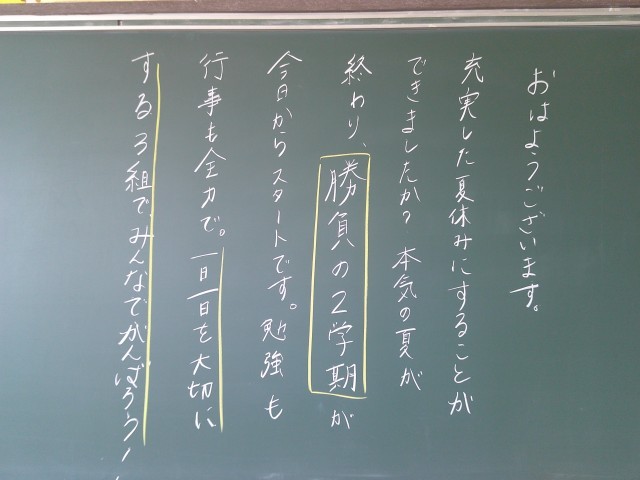 おはようございます。
充実した夏休みにすることが
できましたか？本気の夏が
終わり、勝負の２学期が
今日からスタートです。勉強も
行事も全力で。一日一日を大切に
する３組で、みんなでがんばろう！！